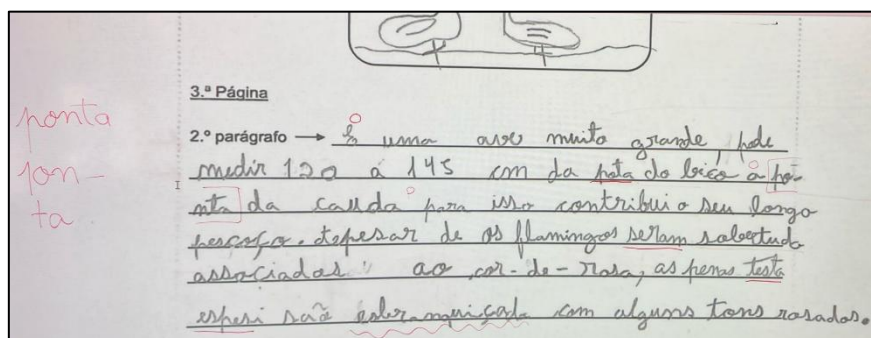 3.ª Página
ponta
pon-
ta
2.º parágrafo → É uma ave muito grande, pode
medir 120 a 145 cm da pota do bico à po-
nta da cauda para isso contribui o seu longo
pescoço. Apesar de os flamingos seram sobertudo
associadas ao cor-de-rosa, as penas testa
espesi são esbranquiçada com alguns tons rosados.